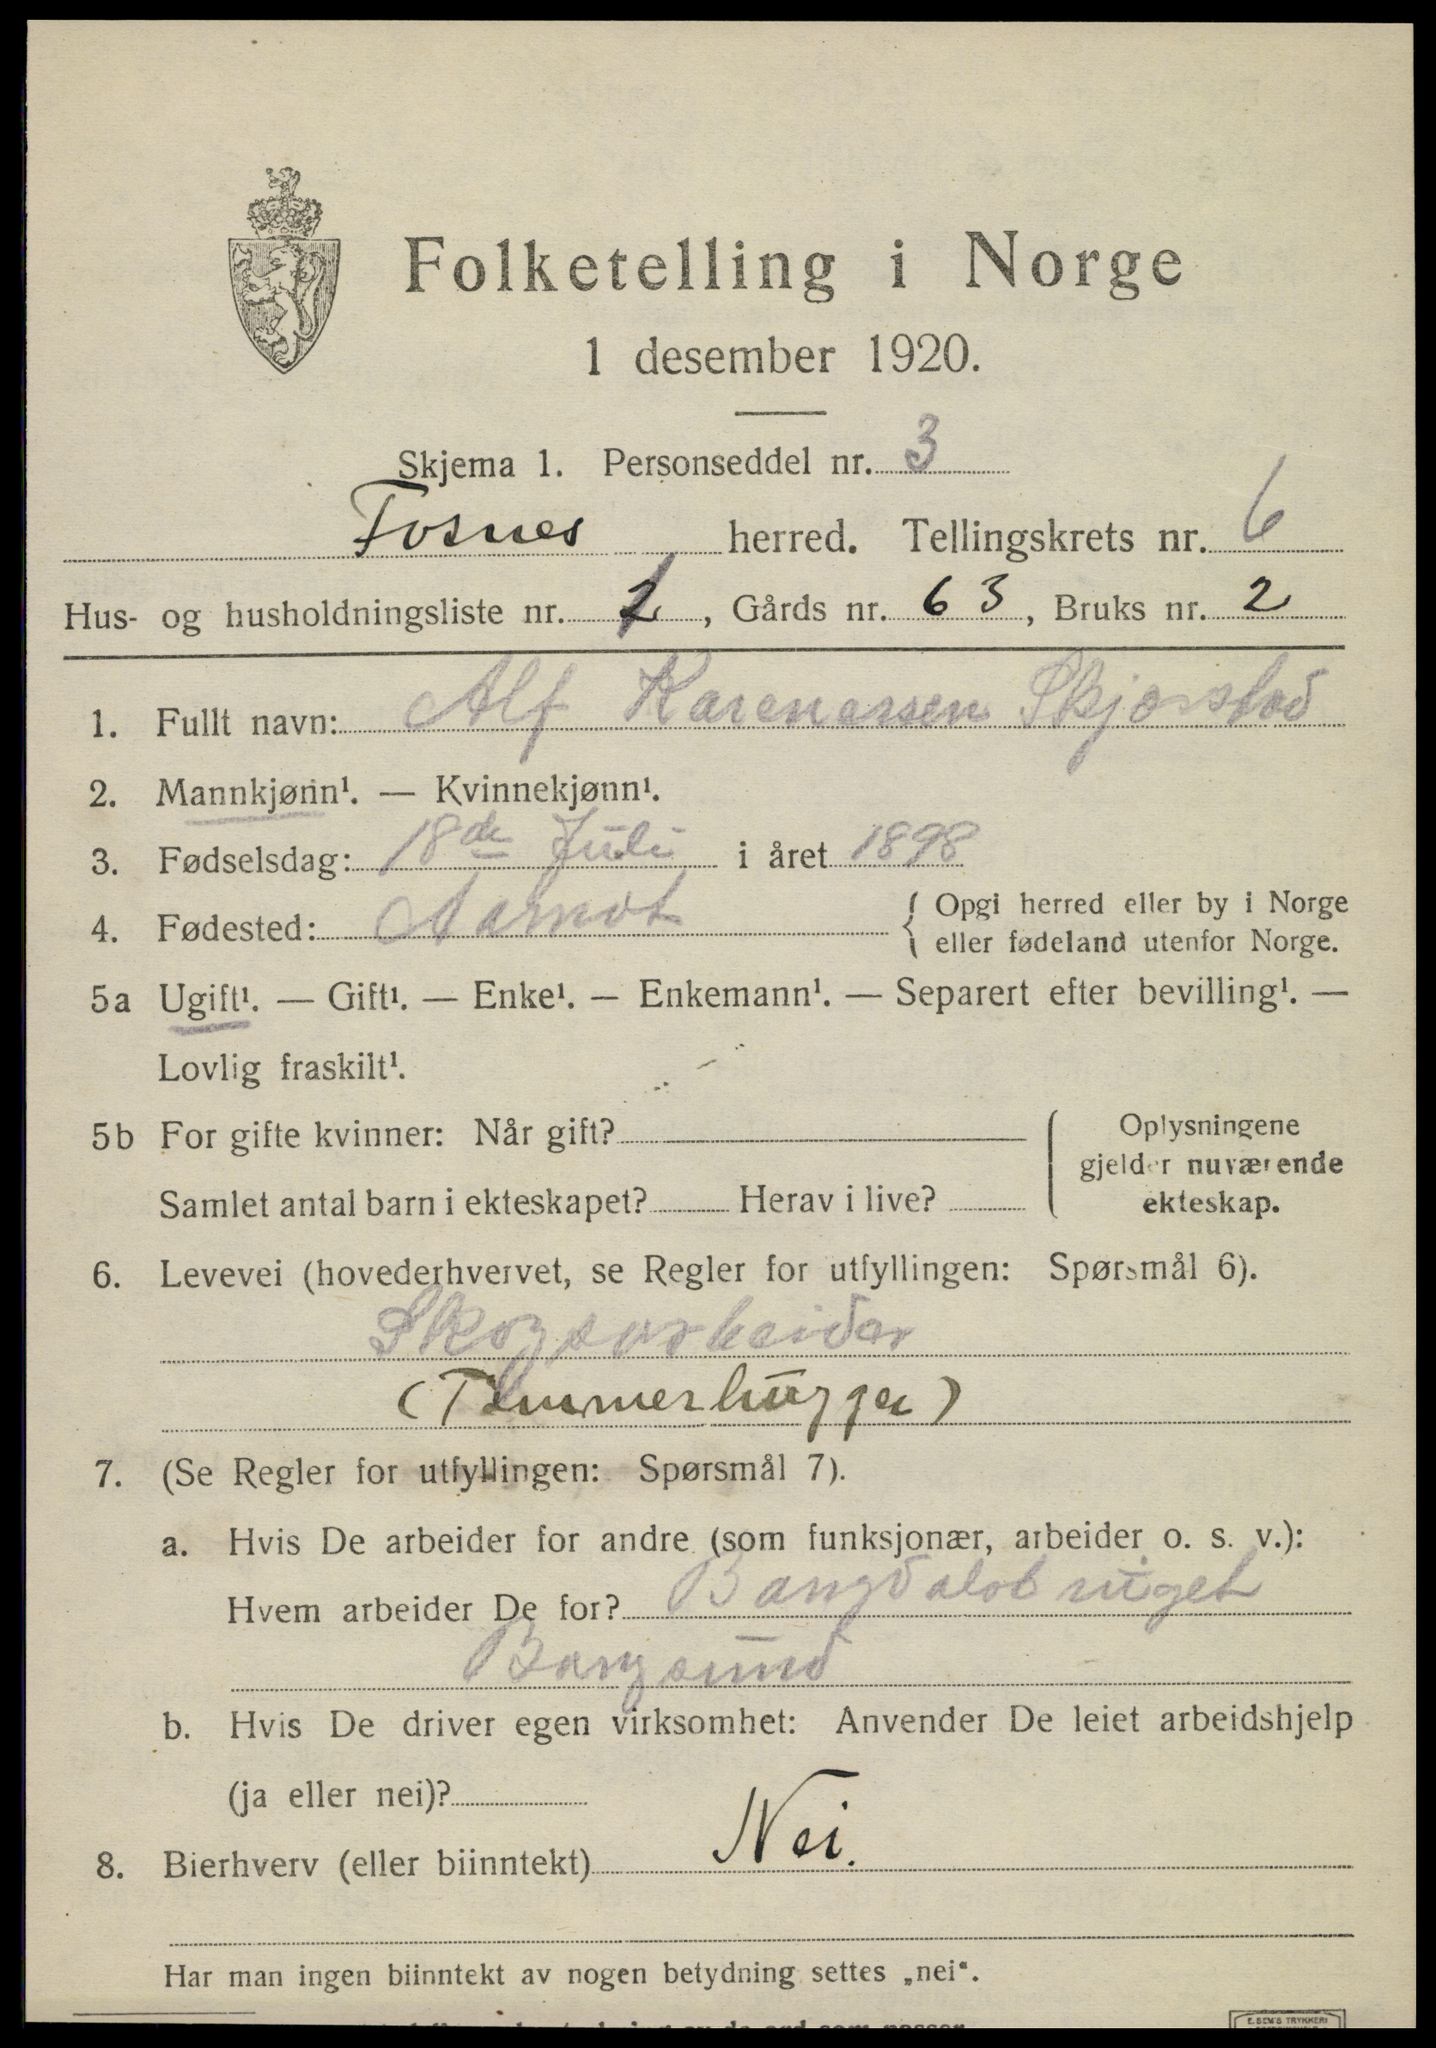 Folketelling i Norge
1 desember 1920.
Skjema 1. Personseddel nr. 3
Fosnes herred. Tellingskrets nr. 6
Hus- og husholdningsliste nr. , Gårds nr. 63, Bruks nr. 2
1. Fullt navn: Alf Karenassen Skjærstad
2. Mannkjønn¹. — Kvinnekjønn¹.
3. Fødselsdag: 18de Juli i året 1898
4. Fødested: { Opgi herred eller by i Norge
eller fødeland utenfor Norge.
5a Ugift¹. — Gift¹. — Enke¹. — Enkemann¹. — Separert efter bevilling¹. —
Lovlig fraskilt¹.
5b For gifte kvinner: Når gift?
Samlet antal barn i ekteskapet? Herav i live?
Oplysningene
gjelder nuværende
ekteskap.
6. Levevei (hovederhvervet, se Regler for utfyllingen: Spørsmål 6).
Skogsarbeider
(Tømmerhugger)
7. (Se Regler for utfyllingen: Spørsmål 7).
a. Hvis De arbeider for andre (som funksjonær, arbeider o. s. v.):
Hvem arbeider De for? Bangdalsbruget
Bangsund
b. Hvis De driver egen virksomhet: Anvender De leiet arbeidshjelp
(ja eller nei)?
8. Bierhverv (eller biinntekt) Nei.
Har man ingen biinntekt av nogen betydning settes „nei“.
E. SEM'S TRYKKERI